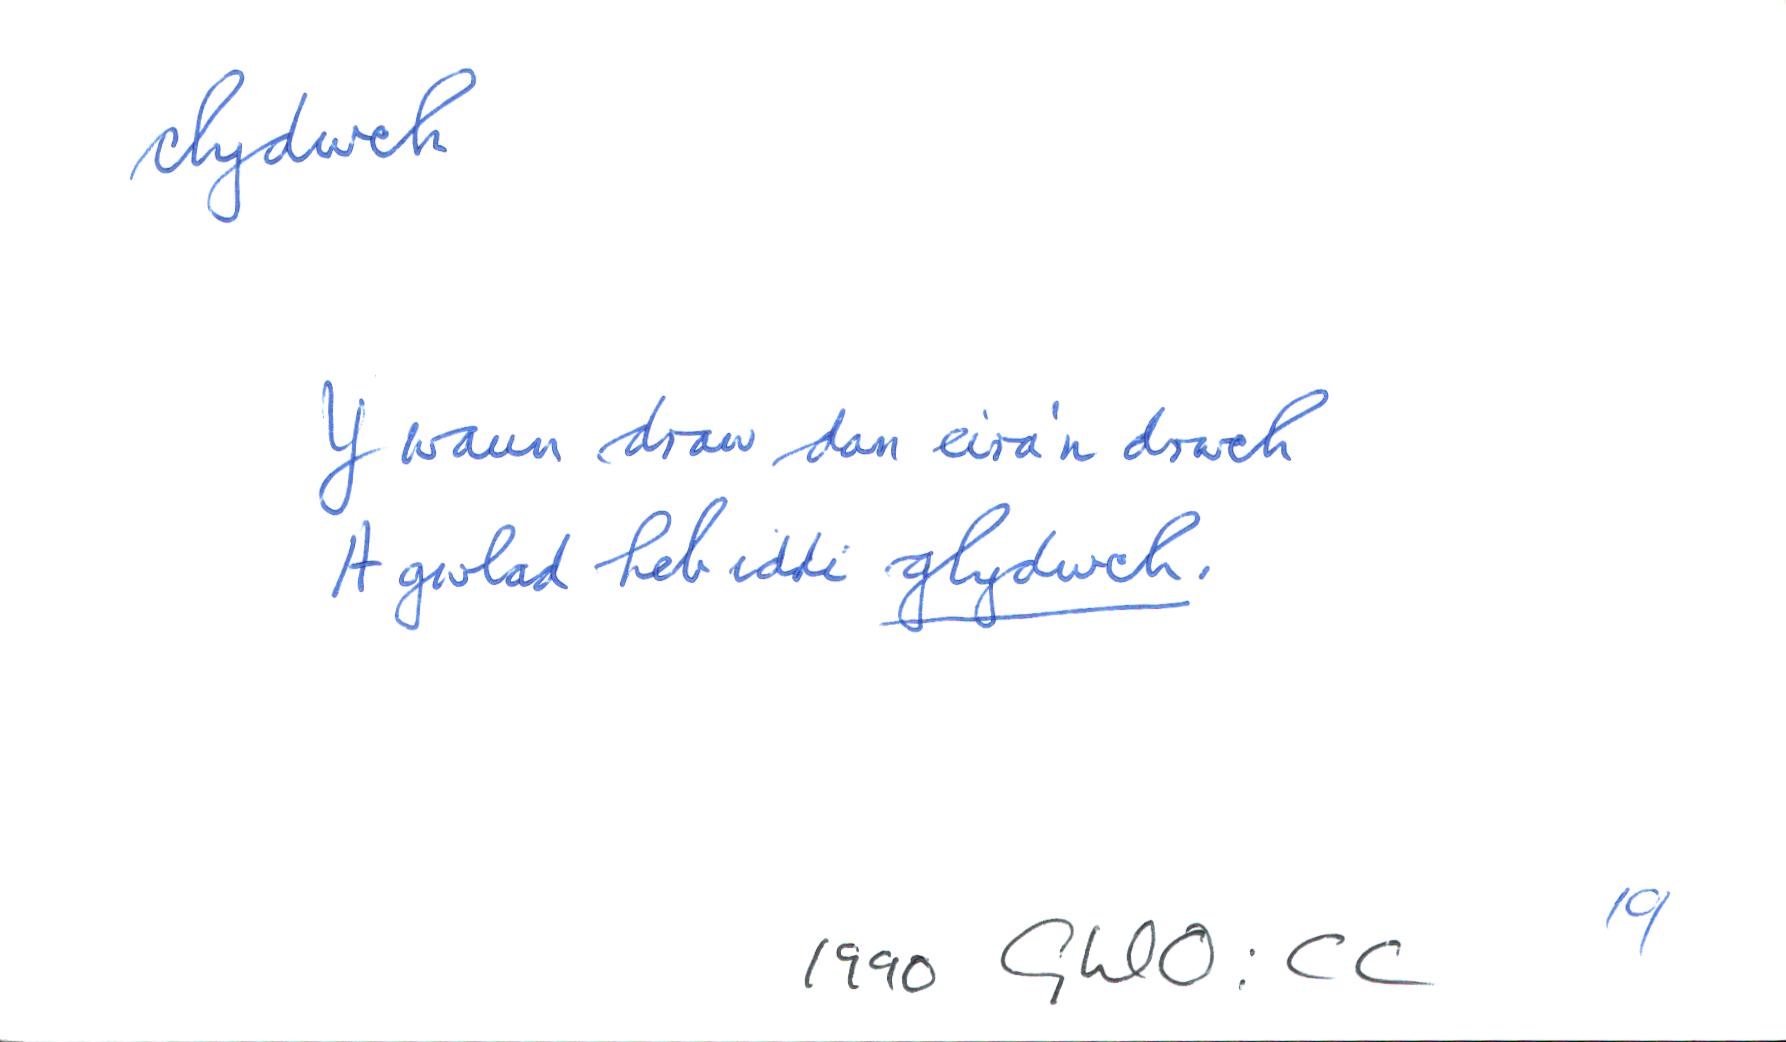 clydwch
Y waun draw dan eira'n drwch
A gwlad heb iddi glydwch.
19
1990 GLlO: CC